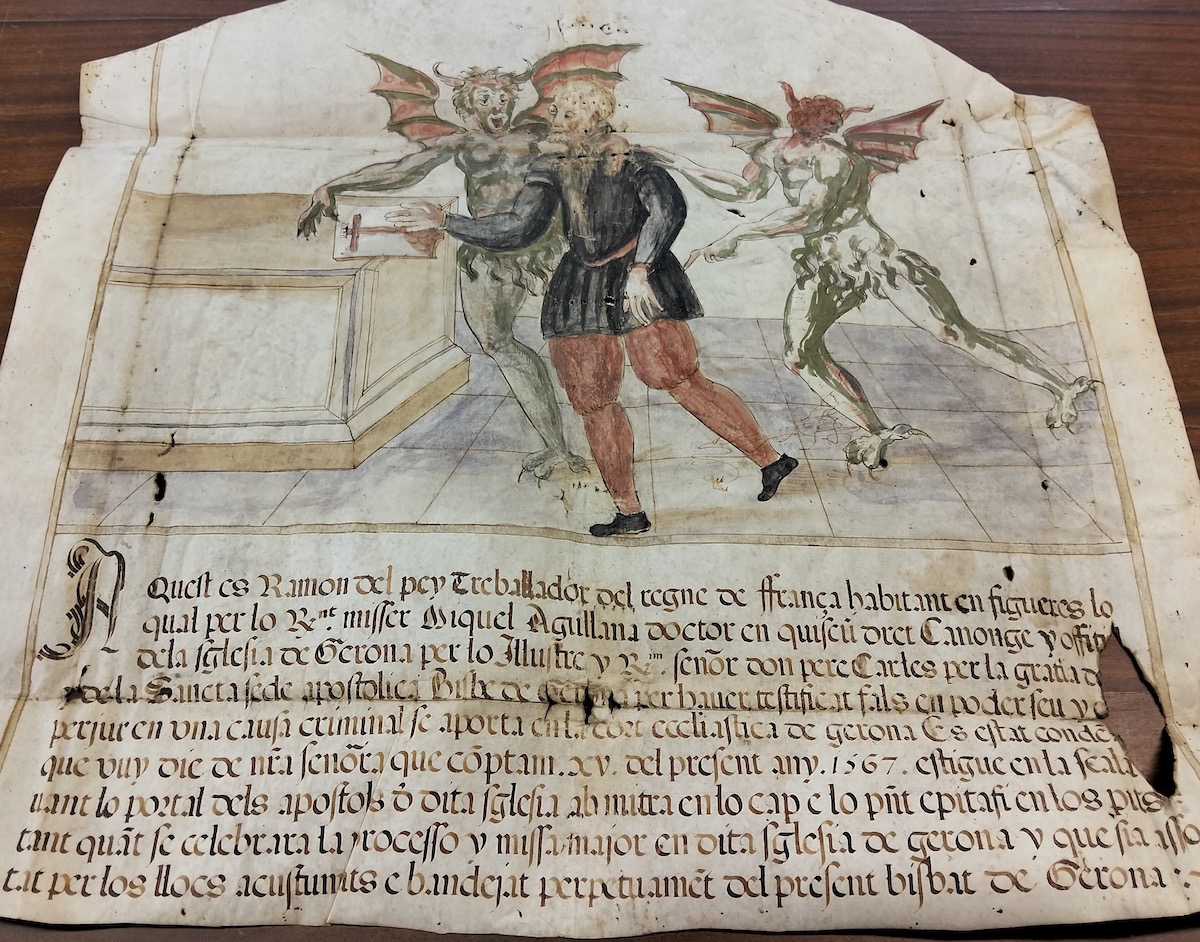 AQuest es Ramon del pey Treballador del regne de ffrança habitant en figueres lo
qual per lo R.nt misser Miquel Agullana doctor en quiscũ dret Canonge y offiti
dela sglesia de Gerona per lo Illustre y R.m señor don pere Carles per la gratia d
y de la Sancta sede apostolica Bisbe de Gerona per haver testificat fals en poder seu y
perjur en vna causa criminal se aporta en la cort ecclesiastica de gerona Es estat conde
que vuy die de nr̃a señora que cõptam .xv. del present any .1567. estigue en la scala
uant lo portal dels apostols d dita sglesia ab mitra en lo cap e lo pñt epitafi en los pits
tant quãt se celebrara la processo y missa major en dita sglesia de gerona y que sia asso
tat per los llocs acustumats e bandejat perpetuamẽt del present bisbat de Gerona :